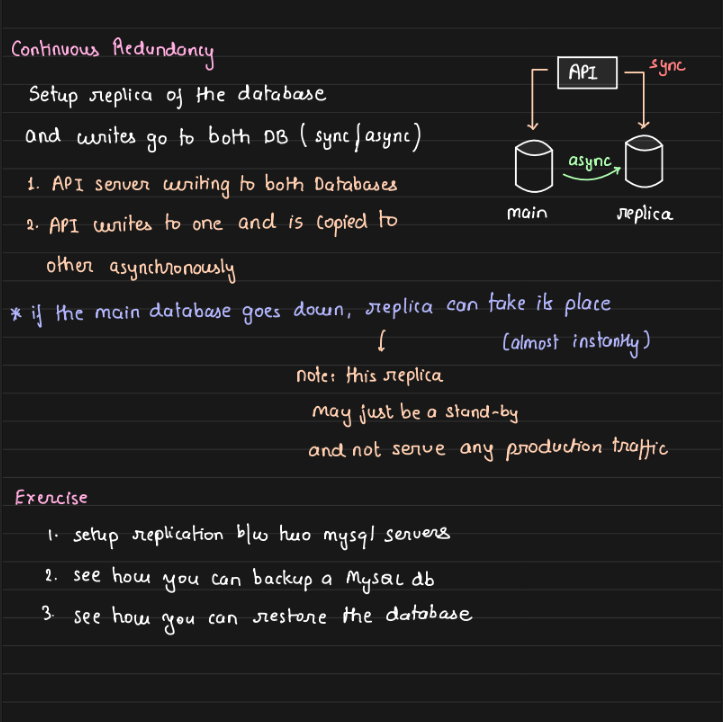 Continuous Redundancy
Setup replica of the database
and writes go to both DB (sync/async)
1. API server writing to both Databases
2. API writes to one and is copied to
other asynchronously
API
sync
async
main
replica
* if the main database goes down, replica can take its place
(almost instantly)
note: this replica
may just be a stand-by
and not serve any production traffic
Exercise
1. setup replication b/w two mysql servers
2. see how you can backup a MySQL db
3. see how you can restore the database